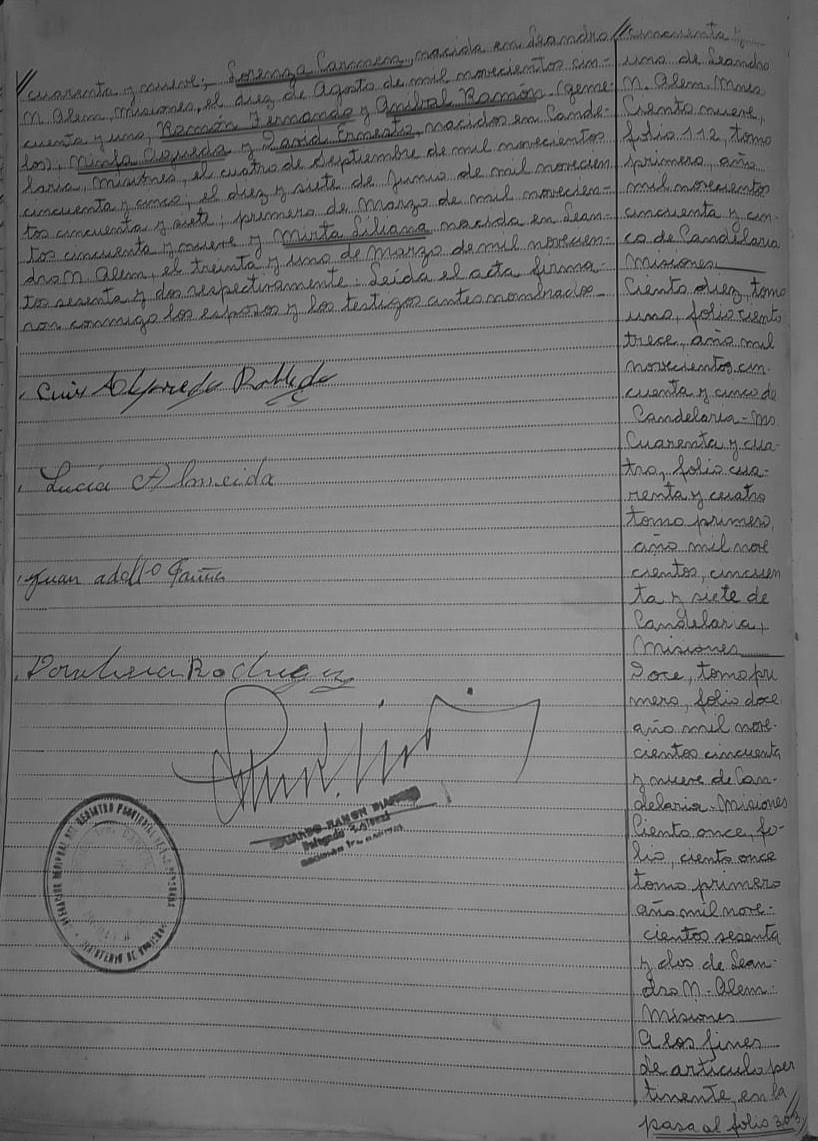 cuarenta y nueve; Lorenza Carmen, nacida en Leandro
N. Alem, Misiones, el diez de Agosto de mil novecientos cin-
cuenta y uno, Ramón Fernando y Anibal Ramón (geme-
los), Ninfa Agueda y David Ernesto, nacidos en Cande-
laria, Misiones, el cuatro de Septiembre de mil novecientos
cincuenta y cinco, el diez y siete de Junio de mil novecien
tos cincuenta y siete; primero de Marzo de mil novecien-
tos cincuenta y nueve y Mirta Liliana nacida en Lean-
dro N. Alem, el treinta y uno de Marzo de mil novecien-
tos sesenta y dos respectivamente. Leída el acta firma-
ron conmigo los esposos y los testigos antes nombrados
Luis Alfredo Robledo
Lucía Almeida
Juan adolfo
Rodriguez
EDUARDO RAMON
cincuenta y
uno de Leandro
N. Alem. Mnes
Ciento nueve,
folio 112, tomo
primero, año
mil novecientos
cincuenta y cin-
co de Candelaria
Misiones
Ciento diez, tomo
uno, folio ciento
trece, año mil
novecientos cin-
cuenta y cinco de
Candelaria - Ms
Cuarenta y cua-
tro, folio cua-
renta y cuatro
tomo primero,
año mil nove
cientos, cincuen
ta y siete de
Candelaria,
Misiones
Doce, tomo pri
mero, folio doce
año mil nove-
cientos cincuenta
y nueve de Can-
delaria - Misiones
Ciento once, fo-
lio, ciento once
tomo primero
año mil nove-
cientos sesenta
y dos de Lean-
dro N. Alem.
Misiones
A los fines
de artículo per
tinente, en la
pasa al folio 303